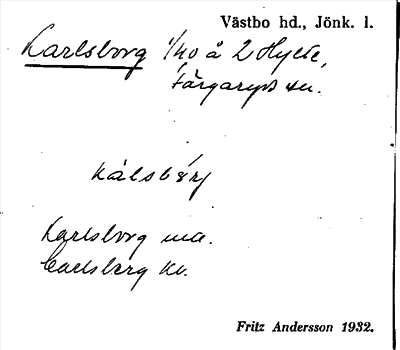 Västbo hd., Jönk. l.
Karlsborg 1/40 å 2 Hylte,
Färgaryds sn.
kálsbórj
Karlsborg ma.
Carlsberg kv.
Fritz Andersson 1932.